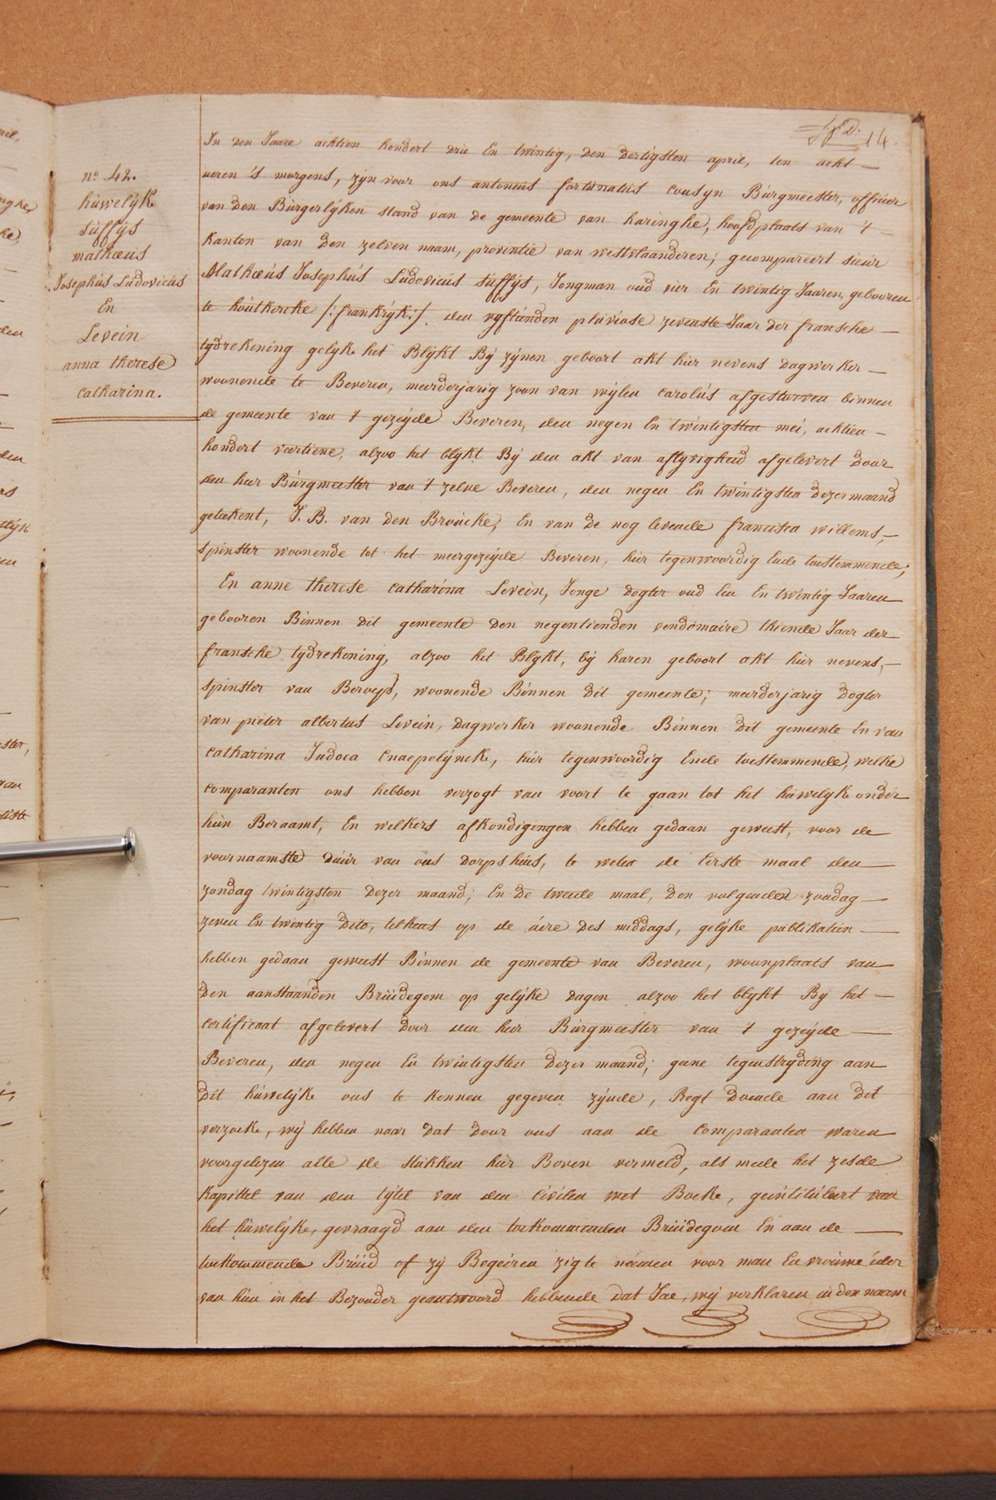 14.
n.º 42.
húwelyk
Súffys
mathœus
Josephús Ludovicús
En
Levein
anna therese
catharina.
In den Jaare achtien hondert drie En twintig, den dertigsten april, ten acht
ueren 's morgens, zyn voor ons antonius fortúnatús cousyn Búrgmeester, officier
van den Búrgerlyken stand van de gemeente van haringhe, hoofdplaats van 't
Kanton van den zelven naam, provintie van westvlaanderen; gecompareert sieur
Mathœús Josephús Lúdovicús súffys, Jongman oud vier En twintig Jaaren, gebooren
te hoútkercke /: frankryk :/ den vyftienden plúviose zevenste Jaar der fransche
tydrekening gelyk het Blykt By zynen geboort akt hier nevens dagwerker
woonende te Beveren, meerderjarig zoon van wylen carolús afgesturven binnen
de gemeente van 't gezeyde Beveren, den negen En twintigsten mei, achtien
hondert veertiene, alzoo het blykt By den akt van aflyvigheid afgelevert door
den heer Búrgmeester van 't zelve Beveren, den negen En twintigsten dezer maand
geteekent, J. B. van den Broúcke, En van de nog levende francisca willems,
spinster woonende tot het meergezeyde Beveren, hier tegenwoordig Ende toestemmende;
En anne therese catharina Levein, Jonge dogter oud En twintig Jaaren
gebooren Binnen dit gemeente den negentienden vendémaire thiende Jaar der
fransche tydrekening, alzoo het Blykt, by haren geboort akt hier nevens,
spinster van Beroep, woonende Binnen dit gemeente; meerderjarig dogter
van pieter albertus Levein, dagwerker woonende Binnen dit gemeente En van
catharina Judoca Cnaepelynck, hier tegenwoordig Ende toestemmende, welke
comparanten ons hebben verzogt van voort te gaan tot het húwelyk onder
hún Beraamt, En welkers afkondigingen hebben gedaan geweest, voor de
voornaamste dúúr van ons dorpshúis, te weten de Eerste maal den
zondag twintigsten dezer maand; En de tweede maal, den volgenden zondag
zeven En twintig dito, telkens op de úire des middags, gelyke publikatien
hebben gedaan geweest Binnen de gemeente van Beveren, woonplaats van
den aanstaanden Brúidegom op gelyke dagen alzoo het blykt By het
certificaat afgelevert door den heer Búrgmeester van 't gezeyde
Beveren, den negen En twintigsten dezer maand; geene tegenstryding aan
dit húwelyk ons te kennen gegeven zynde, Regt doende aan dit
verzoeke, wy hebben naar dat door ons aan de comparanten waren
voorgelezen alle de stúkken hier Boven vermeld, als mede het zesde
kapittel van den tytel van den civilen wet Boeke, geintitúleert van
het húwelyke, gevraagd aan den toekommenden Brúidegom En aan de
toekommende Brúid of zy Begeiren zig te némen voor man En vroúwe ider
van hún in het Bezonder geantwoord hebbende dat Jae, wy verklaren in den naam